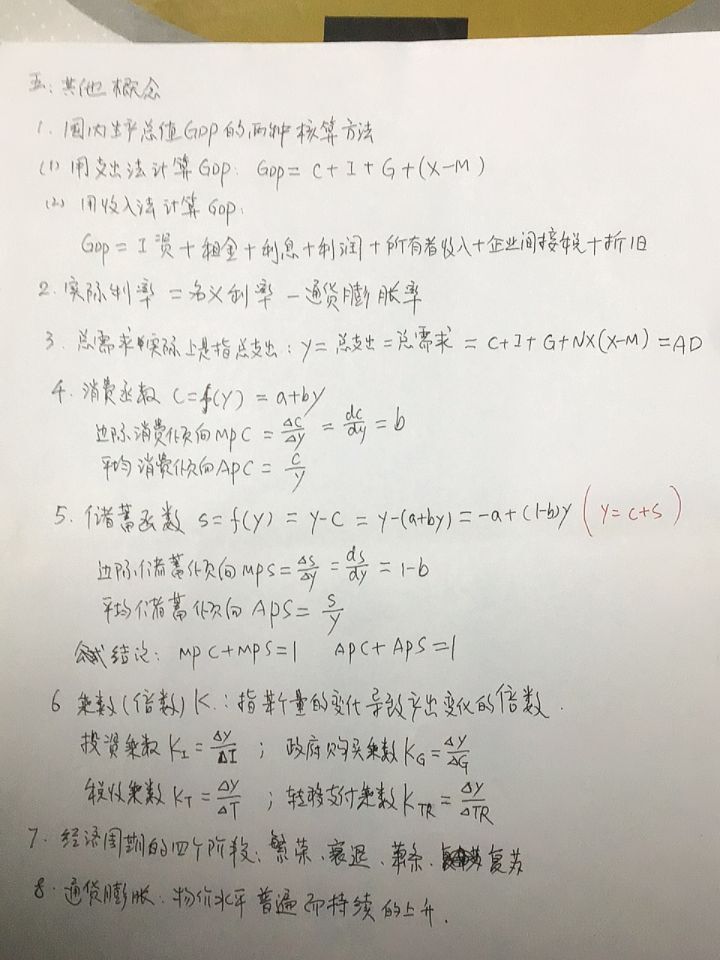 五:其他概念
1.国内生产总值GDP的两种核算方法
(1)用支出法计算GDP: GDP=C+I+G+(X-M)
(2)用收入法计算GDP:
GDP=工资+租金+利息+利润+所有者收入+企业间接税+折旧
2.实际利率=名义利率-通货膨胀率
3.总需求实际上是指总支出:y=总支出=总需求=C+I+G+NX(X-M)=AD
4.消费函数 C=f(Y)=a+by
边际消费倾向MPC=ΔC/Δy=dc/dy=b
平均消费倾向APC=C/y
5.储蓄函数 S=f(Y)=y-C=y-(a+by)=-a+(1-b)y(y=C+S)
边际储蓄倾向MPS=ΔS/Δy=ds/dy=1-b
平均储蓄倾向APS=S/y
结论: MPC+MPS=1 APC+APS=1
6 乘数(倍数)K:指某个量的变化导致产出变化的倍数.
投资乘数K_I=Δy/ΔI;政府购买乘数K_G=Δy/ΔG
税收乘数K_T=Δy/ΔT;转移支付乘数K_TR=Δy/ΔTR
7.经济周期的四个阶段:繁荣、衰退、萧条、复苏
8.通货膨胀:物价水平普遍而持续的上升.